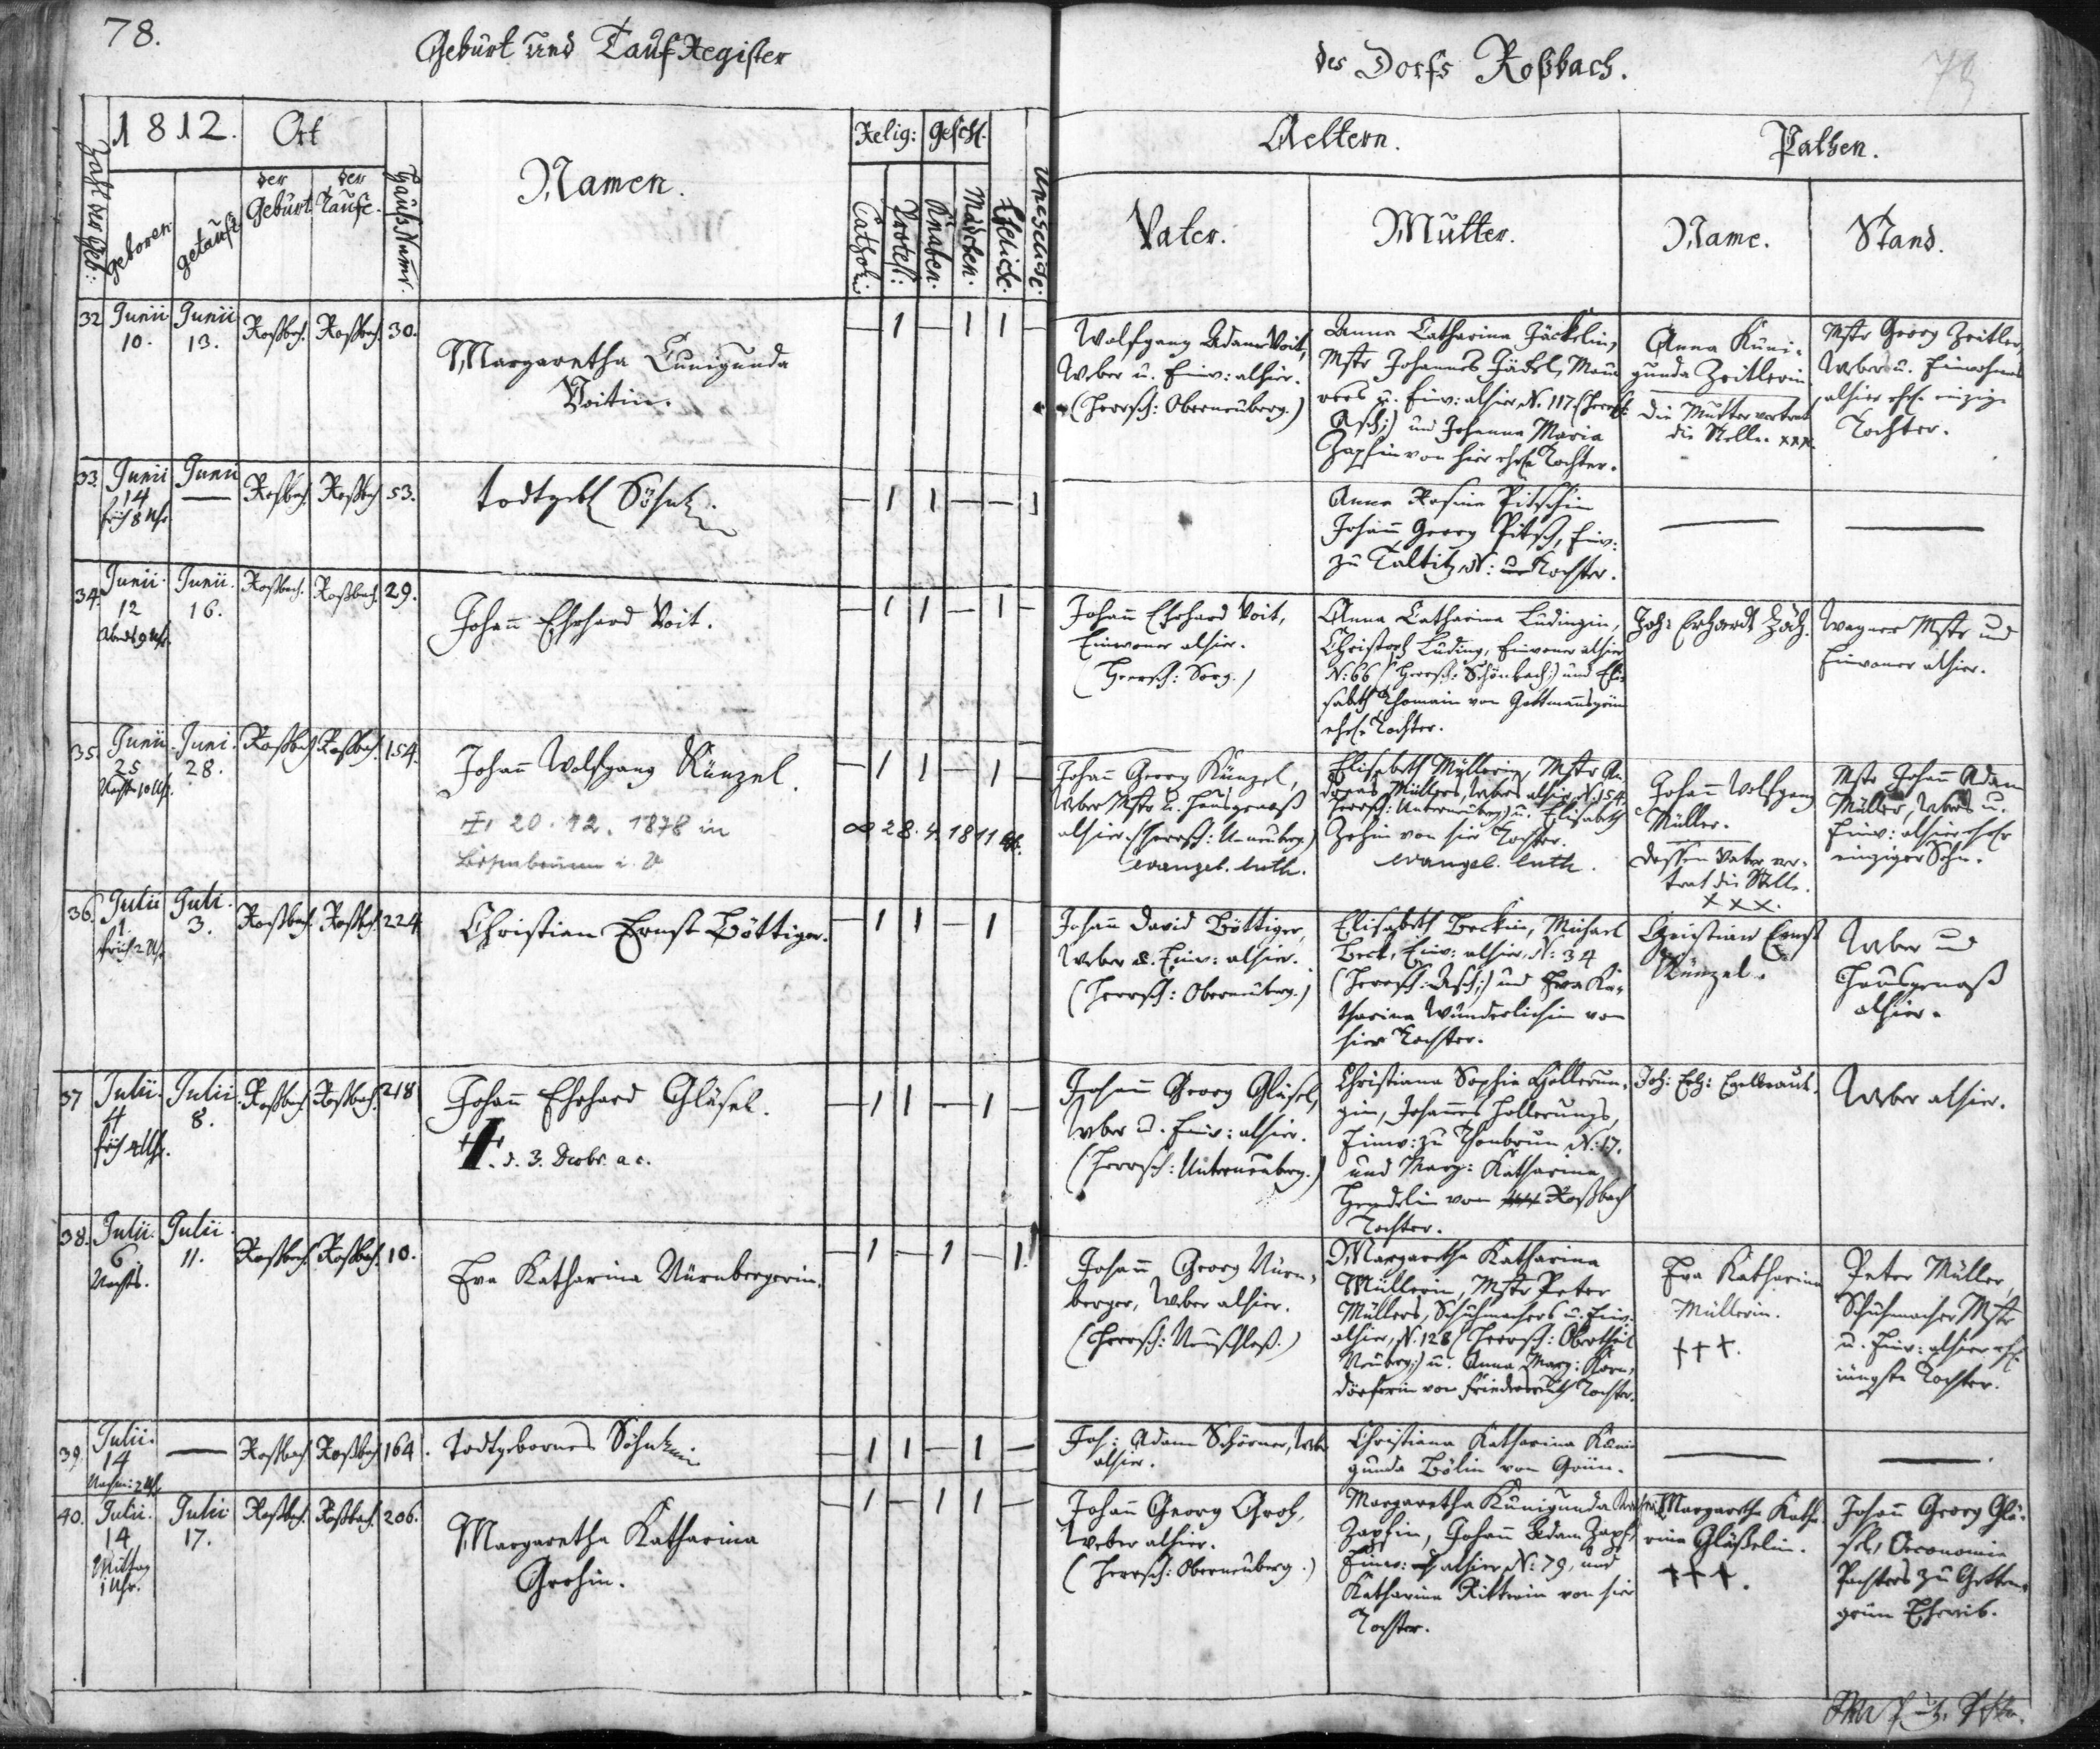 78.
Geburt und Tauf Register
des Dorfs Roßbach.
79
Zahl der Geb:
1812.
Ort
Hauß Numr.
Namen.
Relig:
Geschl.
geboren
getauft
der Geburt
der Taufe.
Cathol:
Protest:
Knaben.
Mädchen.
Eheliche.
Uneheliche.
Aeltern.
Pathen.
Vater.
Mutter.
Name.
Stand.
32 Junii 10. Junii 13. Roßbach. Roßbach. 30.
Margaretha Cunigunda
Voitin.
— 1 — 1 1 —
Wolfgang Adam Voit,
Weber u. Einw: alhier.
(Herrsch: Oberneuberg.)
Anna Catharina Jäckelin,
Mstr Johannes Jäckel, Mau
rers u. Einw: alhier N. 117. (Herrsch:
Asch;) und Johanna Maria
Zapfin von hier ehel. Tochter.
Anna Kuni-
gunda Zeitlerin.
die Mutter vertrat
die Stelle. xxx.
Mstr Georg Zeitler,
Weber u. Einwohner
alhier ehel. einzige
Tochter.
33. Junii 14 früh 8 Uhr Junii — Roßbach. Roßbach 53.
todtgeb. Söhnl.
— 1 1 — — 1
Anna Rosina Pitschin
Johann Georg Pitsch, Einw:
zu Taltitz N: Tochter.
— —
34. Junii 12 Abends 9 Uhr. Junii. 16. Roßbach. Roßbach. 29.
Johann Ehrhard Voit.
— 1 1 — 1 —
Johann Ehrhard Voit,
Einwoner alhier.
(Herrsch: Sorg.)
Anna Catharina Ludingin,
Christoph Luding, Einwoner alhier
N: 66 (Herrsch: Schönbach;) und Eli-
sabeth Thomain von Gottmannsgrün
ehel. Tochter.
Joh: Erhardt Zöch.
Wagner Mstr und
Einwoner alhier.
35. Junii 25 Nachts 10 Uhr. Juni. 28. Roßbach Roßbach. 154.
Johann Wolfgang Künzel.
+ 20. 12. 1878 in
Bösenbrunn i. V
— 1 1 — 1 —
∞ 28. 4. 1811
Johann Georg Künzel,
Weber Mstr u. Hausgenoß
alhier. (Herrsch: Unterneuberg)
evangel. luth.
Elisabeth Müllerin, Mstr An
dreas Müllers, Webers alhier N. 154.
Herrsch: Unterneuberg) u. Elisabeth
Zehin von hier Tochter.
evangel. luth.
Johann Wolfgang
Müller.
dessen Vater ver-
trat die Stelle.
x x x.
Mstr Johann Adam
Müller, Webers u.
Einw: alhier ehel.
einziger Sohn.
36. Julii 1. früh 2 Uhr Juli. 3. Roßbach. Roßbach. 224
Christian Ernst Böttiger.
— 1 1 — 1
Johann David Böttiger,
Weber u. Einw: alhier.
(Herrsch: Oberneuberg.)
Elisabeth Beckin, Michael
Beck, Einw: alhier, N: 34
(Herrsch: Asch;) und Eva Ka-
tharina Wunderlichin von
hier Tochter.
Christian Ernst
Künzel.
Weber und
Hausgenoß
alhier.
37 Julii. 4 früh 4 Uhr. Julii. 8. Roßbach. Roßbach. 218
Johann Ehrhard Gläsel.
+. d. 3. Decbr. a c.
— 1 1 — 1 —
Johann Georg Gläsel,
Weber u. Einw: alhier.
(Herrsch: Unterneuberg.)
Christiana Sophia Hollerun-
gin, Johannes Hollerungs,
Einw: zu Thonbrun N: 17.
und Marg: Katharina
Hendelin von Roßbach
Tochter.
Joh: Erh: Egelkraut.
Weber alhier.
38. Julii. 6 Nachts. Julii. 11. Roßbach. Roßbach. 10.
Eva Katharina Nürnbergerin.
— 1 — 1 — 1.
Johann Georg Nürn-
berger, Weber alhier.
(Herrsch: Neuschloß.)
Margaretha Katharina
Müllerin, Mstr Peter
Müllers, Schuhmachers u. Einw:
alhier, N. 128 (Herrsch: Obertheil
Neuberg;) u. Anna Marg: Korn-
dörferin von Friedersreuth Tochter.
Eva Katharina
Müllerin.
+++.
Peter Müller,
Schuhmacher Mstr
u. Einw: alhier ehel.
jüngste Tochter.
39. Julii. 14 Nachm: 2 Uhr — Roßbach Roßbach 164.
Todtgebornes Söhnlein
— 1 1 — 1 —
Joh: Adam Schörner, Weber
alhier.
Christiana Katharina Kuni
gunda Bölin von Grün.
— —.
40. Julii. 14 Mittag 1 Uhr. Julii 17. Roßbach. Roßbach. 206.
Margaretha Katharina
Grohin.
— 1 — 1 1 —
Johann Georg Groh,
Weber alhier.
(Herrsch: Oberneuberg.)
Margaretha Kunigunda
Zapfin, Johann Adam Zapf,
Einw: alhier N: 79, und
Katharina Ritterin von hier
Tochter.
Margaretha Katha
rina Gläßelin.
+++.
Johann Georg Glä-
sel, Oeconomie
Pachters zu Gotten-
grün Eheweib.